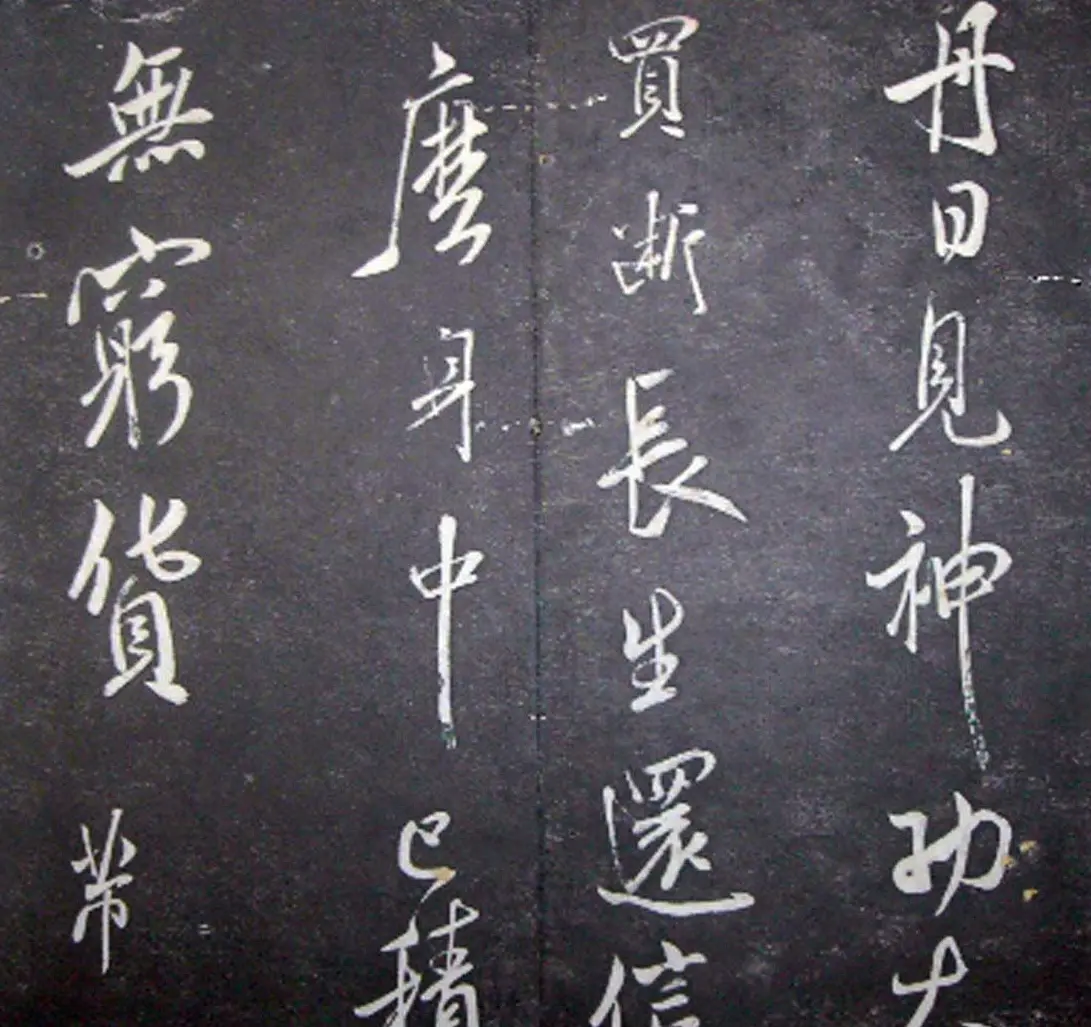 丹日見神功大
買斷長生還信
麽身中已積
無窮貨 帶